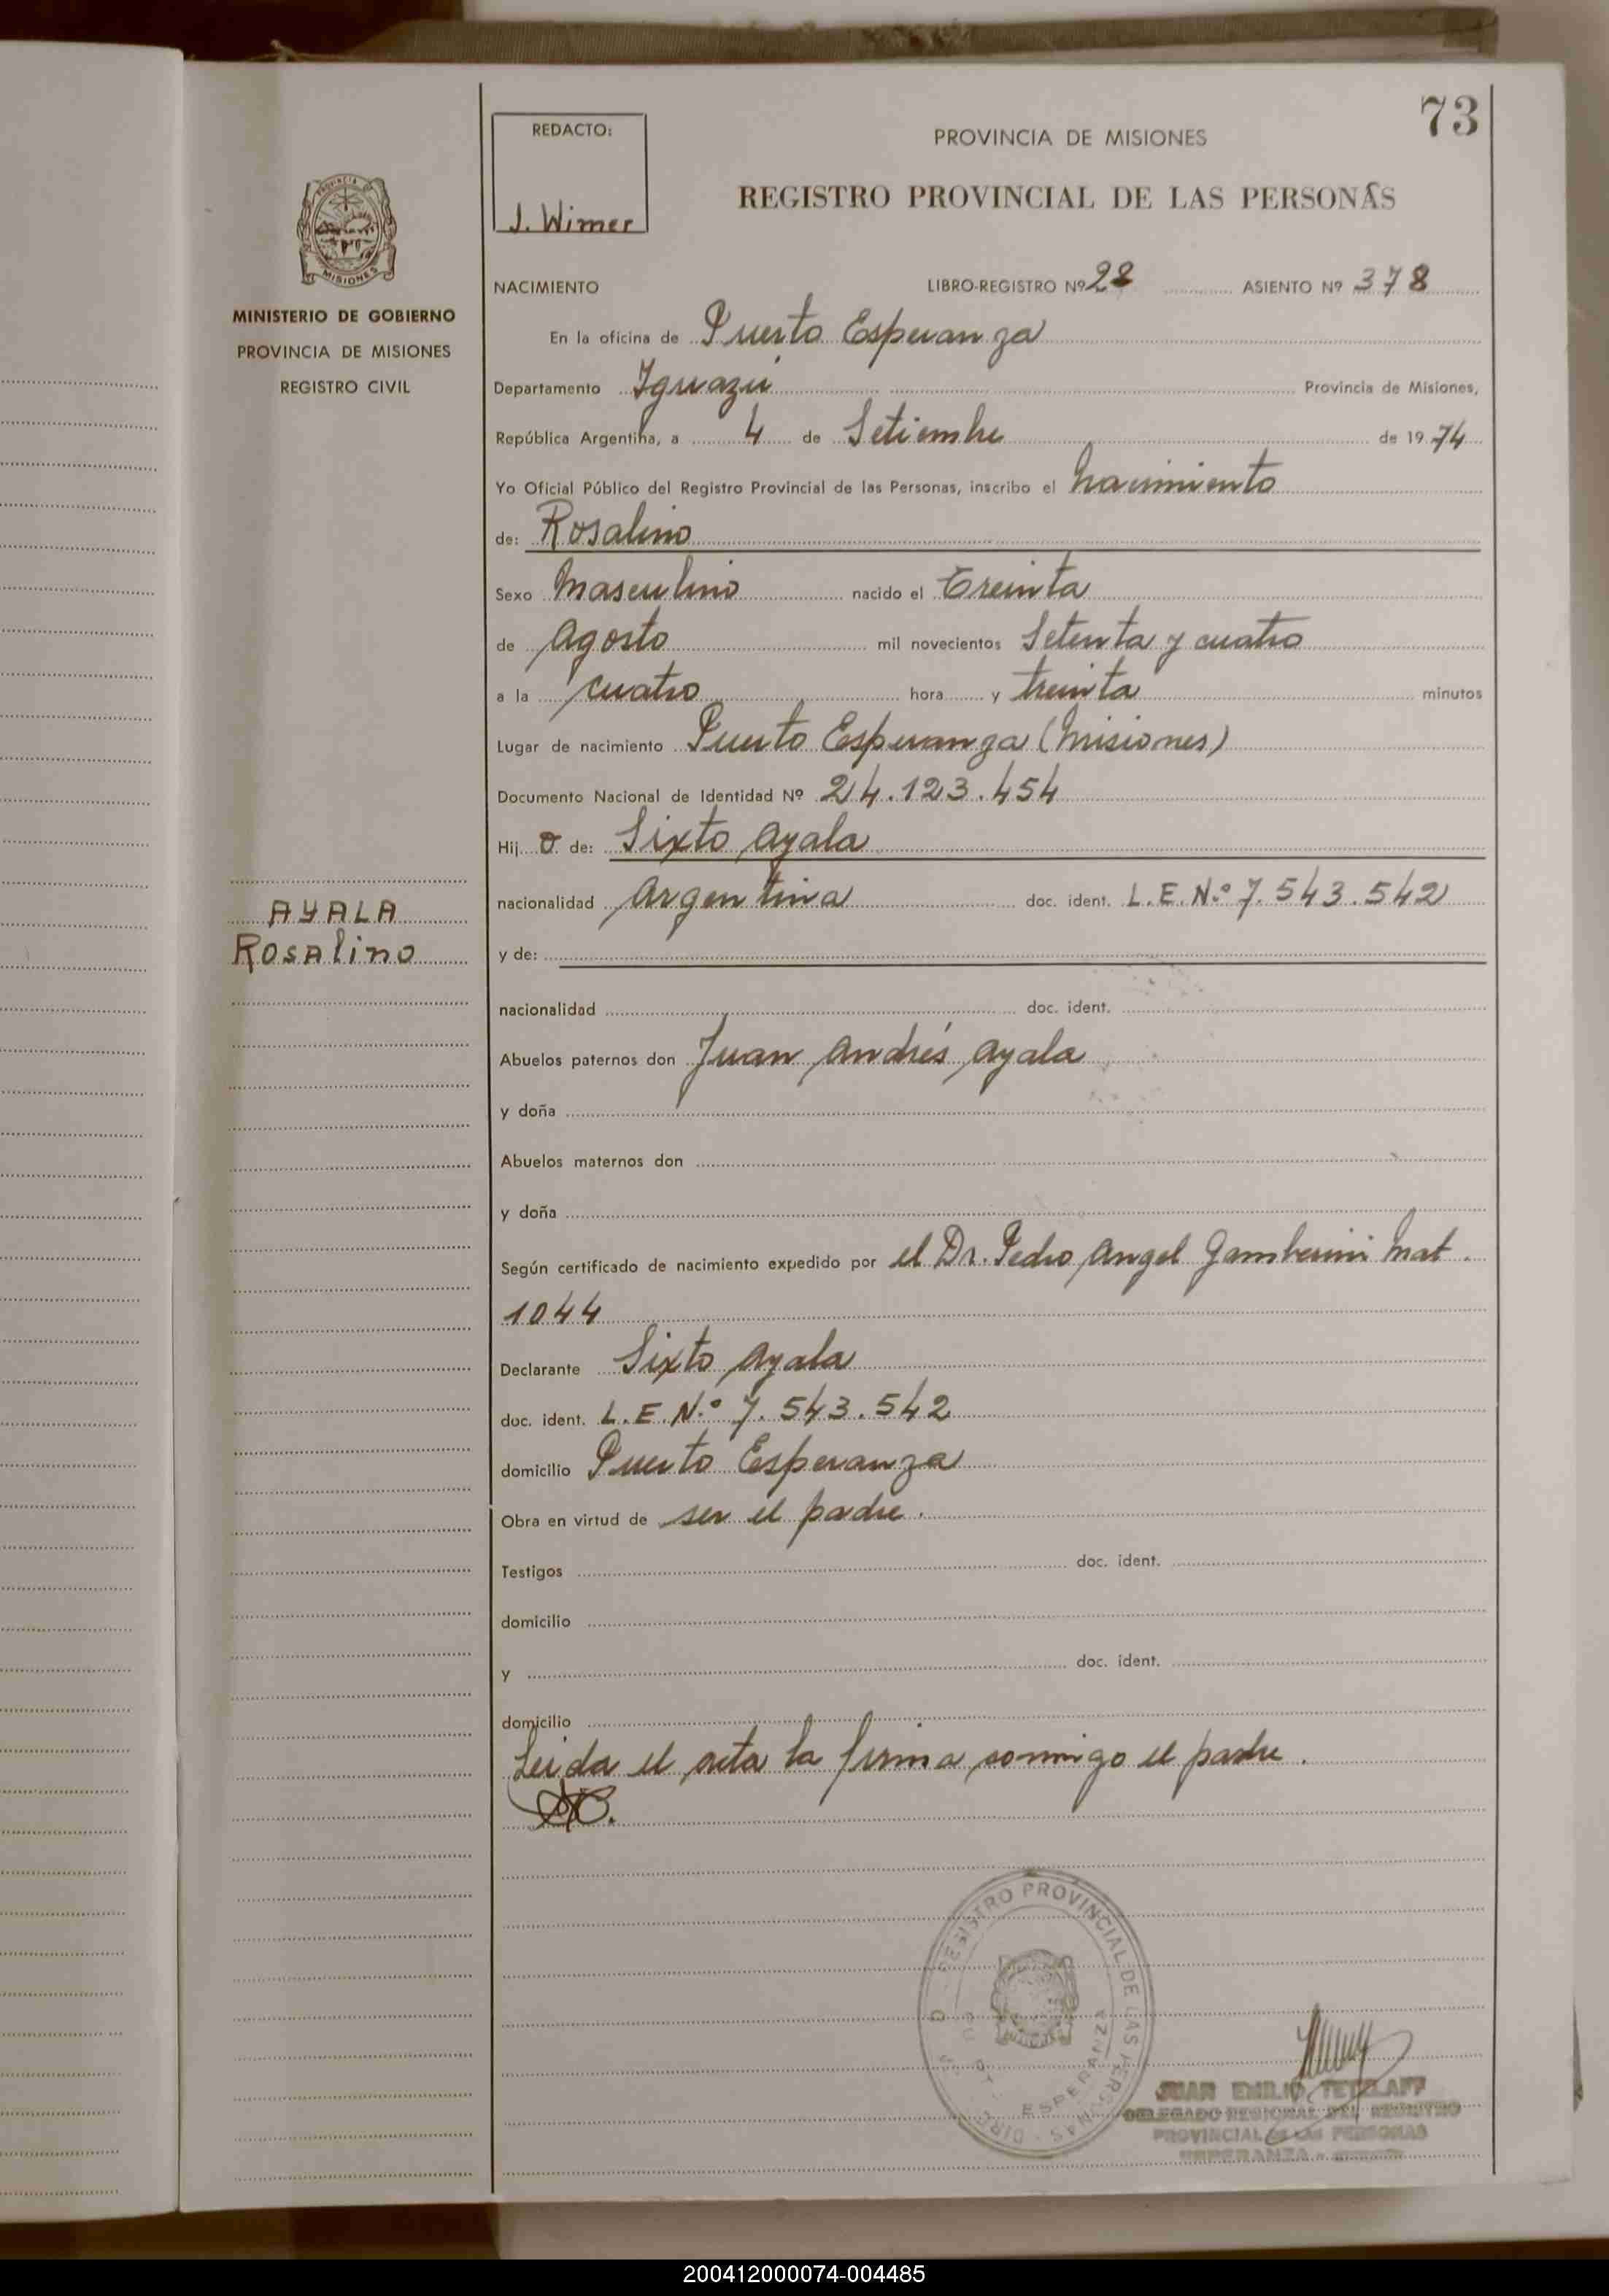 73
REDACTO:
J. Wimer
PROVINCIA DE MISIONES
REGISTRO PROVINCIAL DE LAS PERSONAS
MISIONES
MINISTERIO DE GOBIERNO
PROVINCIA DE MISIONES
REGISTRO CIVIL
AYALA
Rosalino
NACIMIENTO LIBRO-REGISTRO Nº 28 ASIENTO Nº 378
En la oficina de Puerto Esperanza
Departamento Iguazú Provincia de Misiones,
República Argentina, a 4 de Setiembre de 1974
Yo Oficial Público del Registro Provincial de las Personas, inscribo el nacimiento
de: Rosalino
Sexo Masculino nacido el Treinta
de Agosto mil novecientos Setenta y cuatro
a la cuatro hora y treinta minutos
Lugar de nacimiento Puerto Esperanza (Misiones)
Documento Nacional de Identidad Nº 24.123.454
Hij o de: Sixto Ayala
nacionalidad Argentina doc. ident. L.E.N.º 7.543.542
y de:
nacionalidad doc. ident.
Abuelos paternos don Juan Andrés Ayala
y doña
Abuelos maternos don
y doña
Según certificado de nacimiento expedido por el Dr. Pedro Angel Gamberini Mat.
1044
Declarante Sixto Ayala
doc. ident. L.E.N.º 7.543.542
domicilio Puerto Esperanza
Obra en virtud de ser el padre.
Testigos doc. ident.
domicilio
y doc. ident.
domicilio
Leida el acta la firma conmigo el padre.
REGISTRO PROVINCIAL DE LAS PERSONAS
ESPERANZA
JUAN EMILIO TETZLAFF
DELEGADO REGIONAL DEL REGISTRO
PROVINCIAL DE LAS PERSONAS
ESPERANZA
200412000074-004485